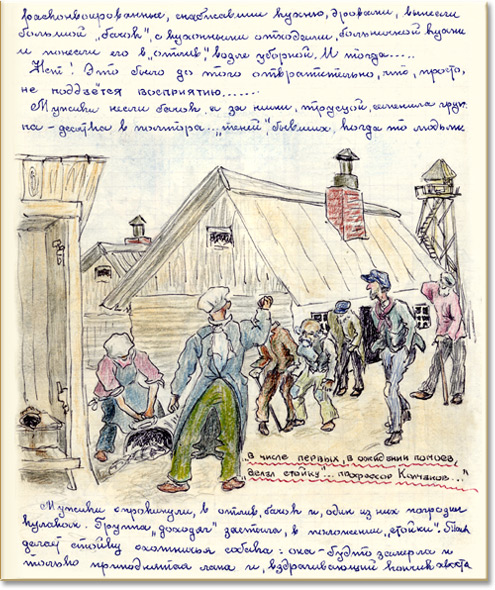 расконвоированные, снабжавшии кухню, дровами, вынесли
большой „бачок", с кухонными отходами, больничной кухни
и понесли его в „отлив", возле уборной. И тогда.....
Нет! Это было до того отвратительно, что, просто,
не поддаётся восприятию,......
Мужики несли бачок, а за ними, трусцой, семенила груп-
па - десятка в полтора... „теней", бывших, когда то людьми
„в числе первых, в ожидении помоев,
делал стойку"... профессор Колчанов..."
Мужики опрокинули, в отлив, бачок и, один из них погрозил
кулаком. Группа „доходяг" застыла, в положении „стойки". Так
делает стойку охотничья собака: она - будто замерла и
только приподнятая лапа и, вздрагивающий кончик хвоста